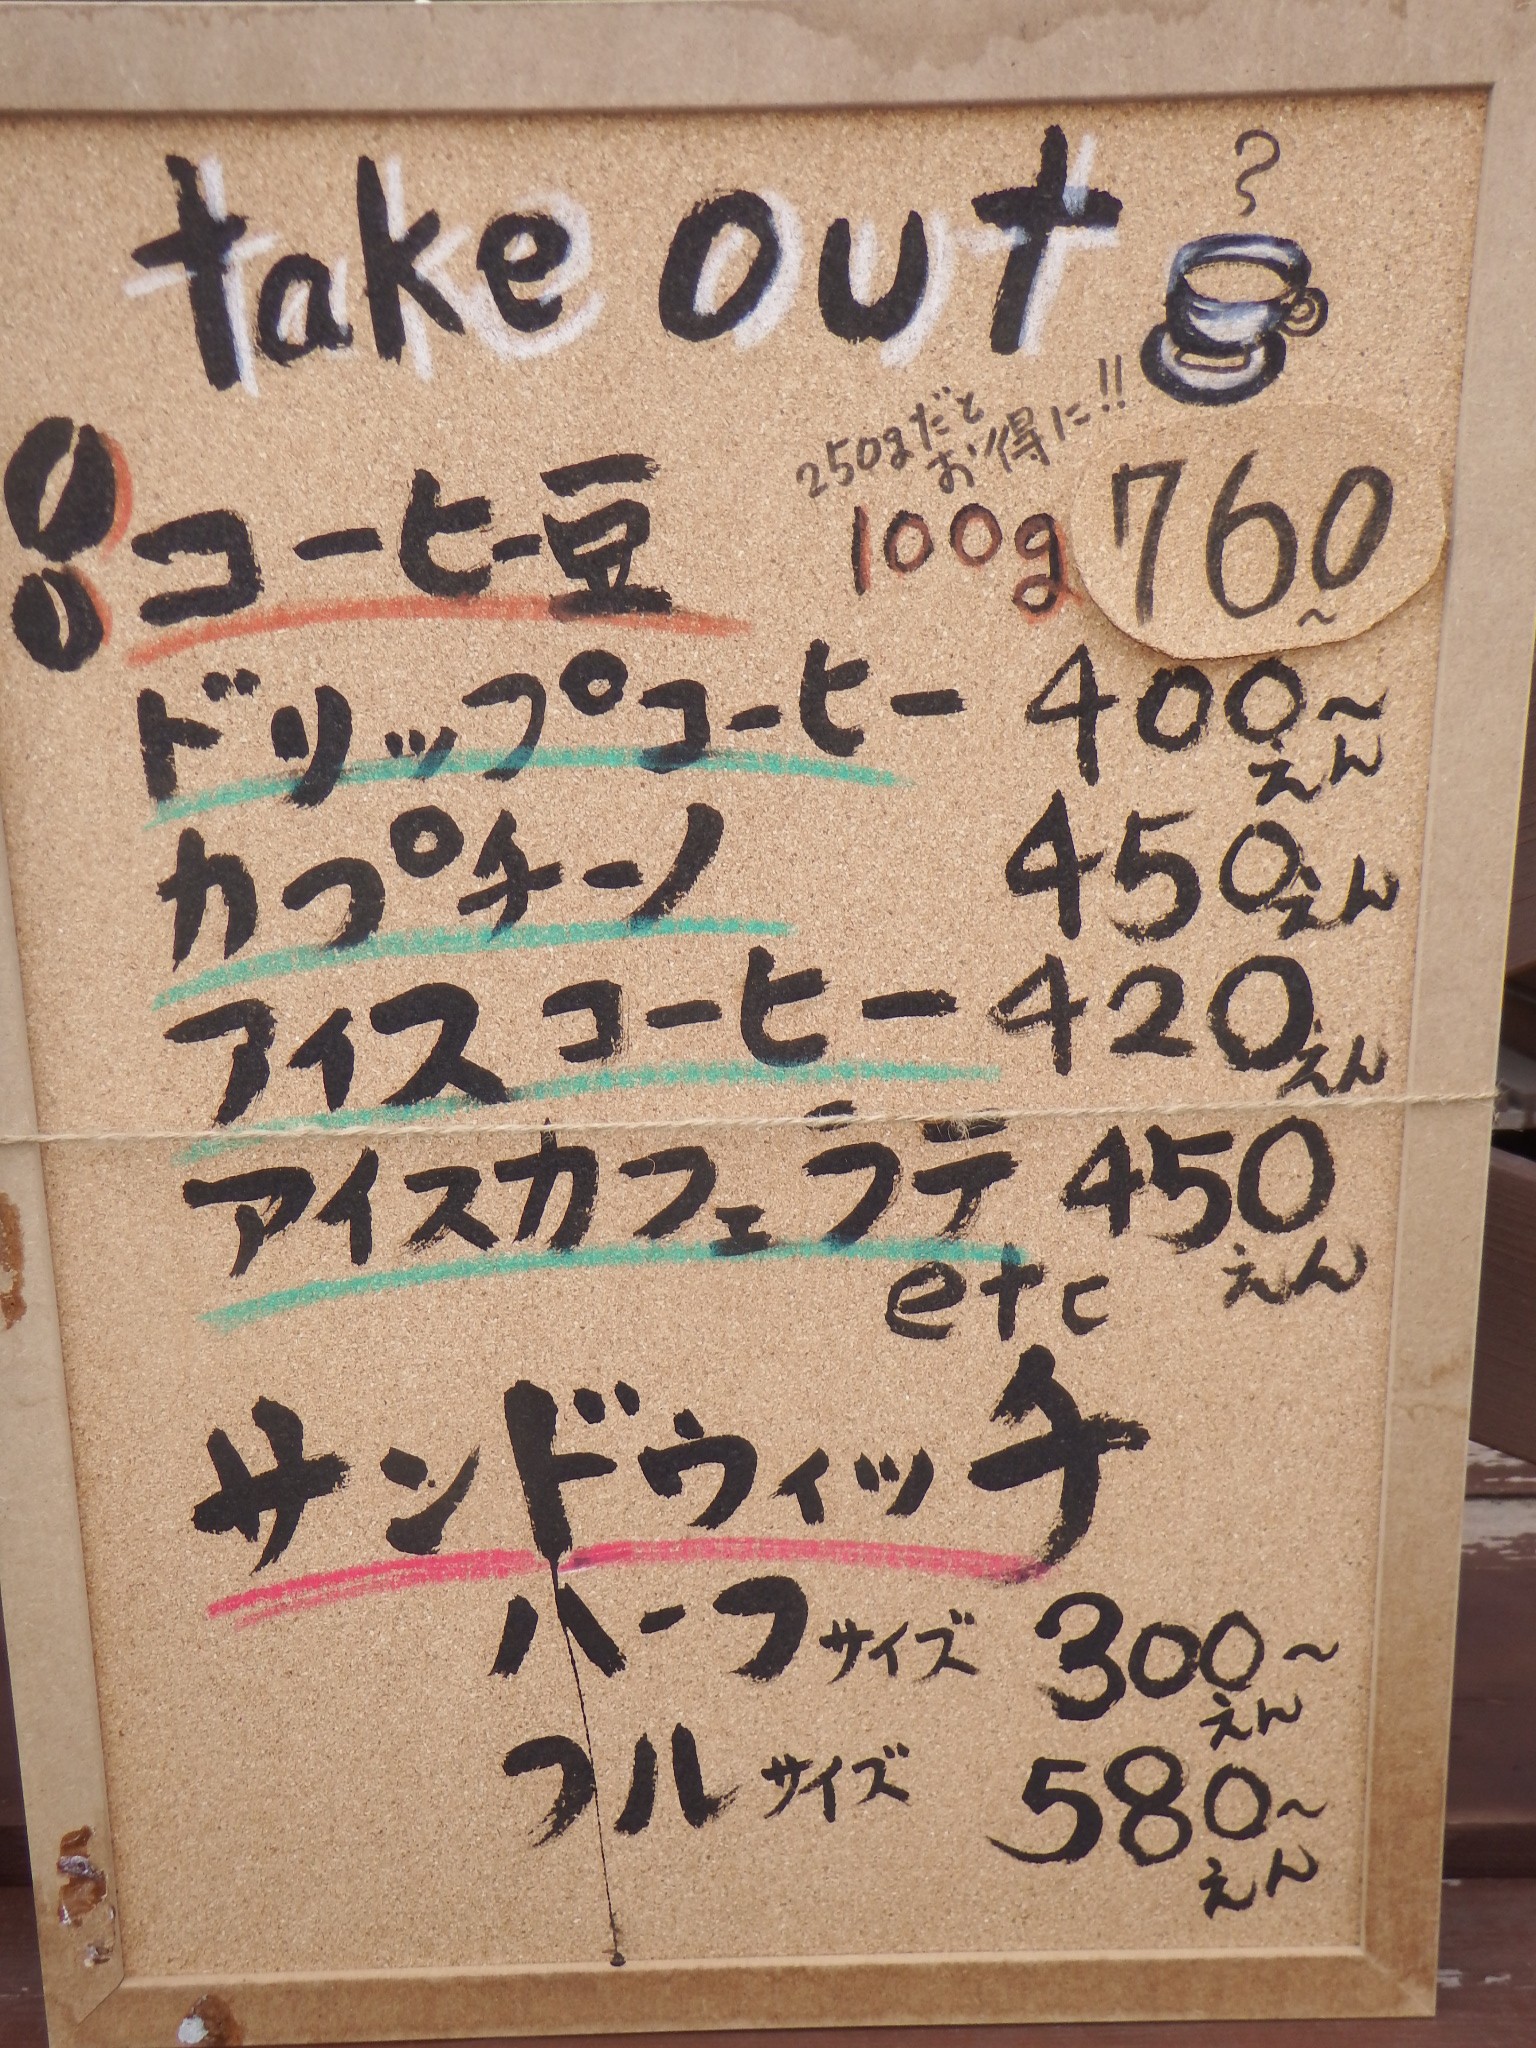 take out
250gだと
お得に!!
コーヒー豆 100g 760~
ドリップコーヒー 400~えん
カプチーノ 450えん
アイスコーヒー 420えん
アイスカフェラテ 450えん
etc
サンドウィッチ
ハーフサイズ 300~えん
フルサイズ 580~えん